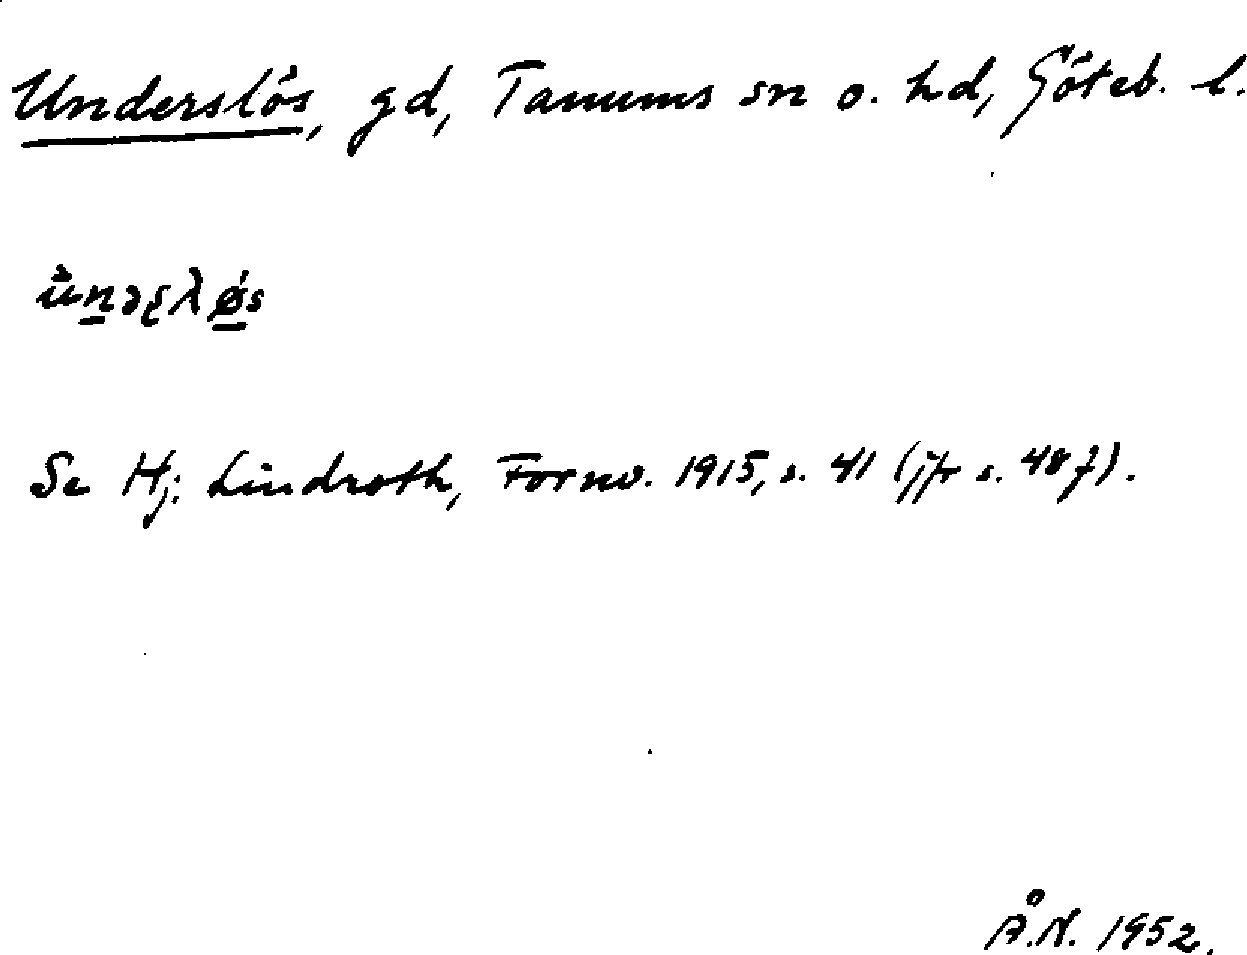 Underslös, gd, Tanums sn o. hd, Göteb. l.
Se Hj. Lindroth, Fornv. 1915, s. 41 (jfr s. 48 f).
Å.N. 1952.